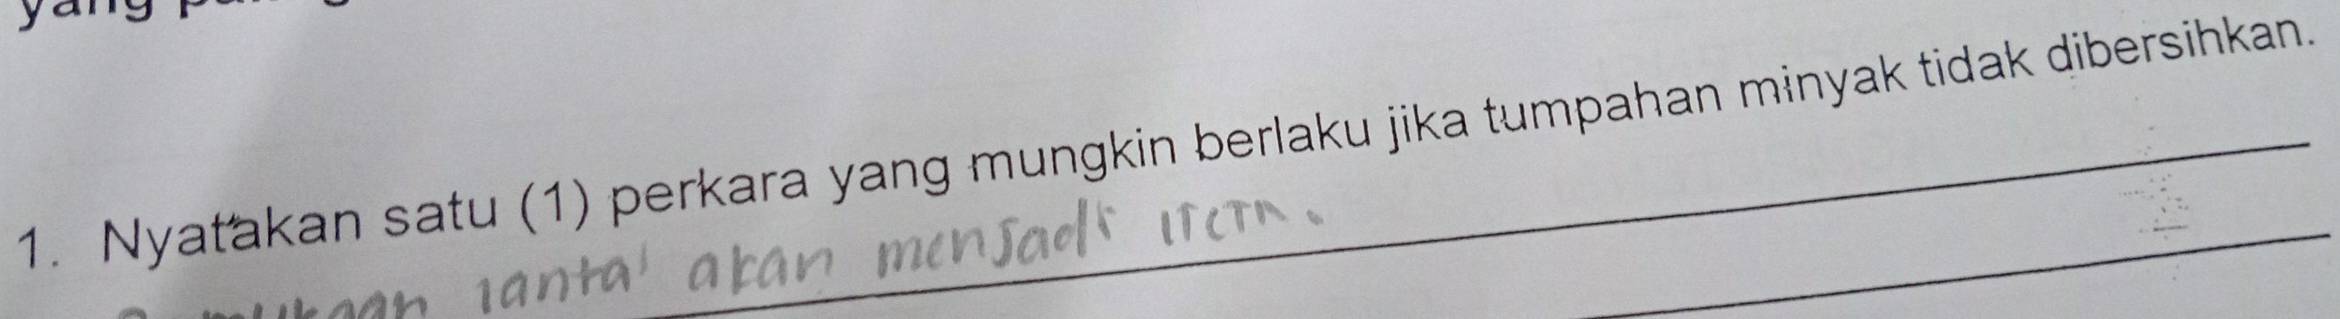 yang
1. Nyatakan satu (1) perkara yang mungkin berlaku jika tumpahan minyak tidak dibersihkan.
lantai akan menjadi licin.